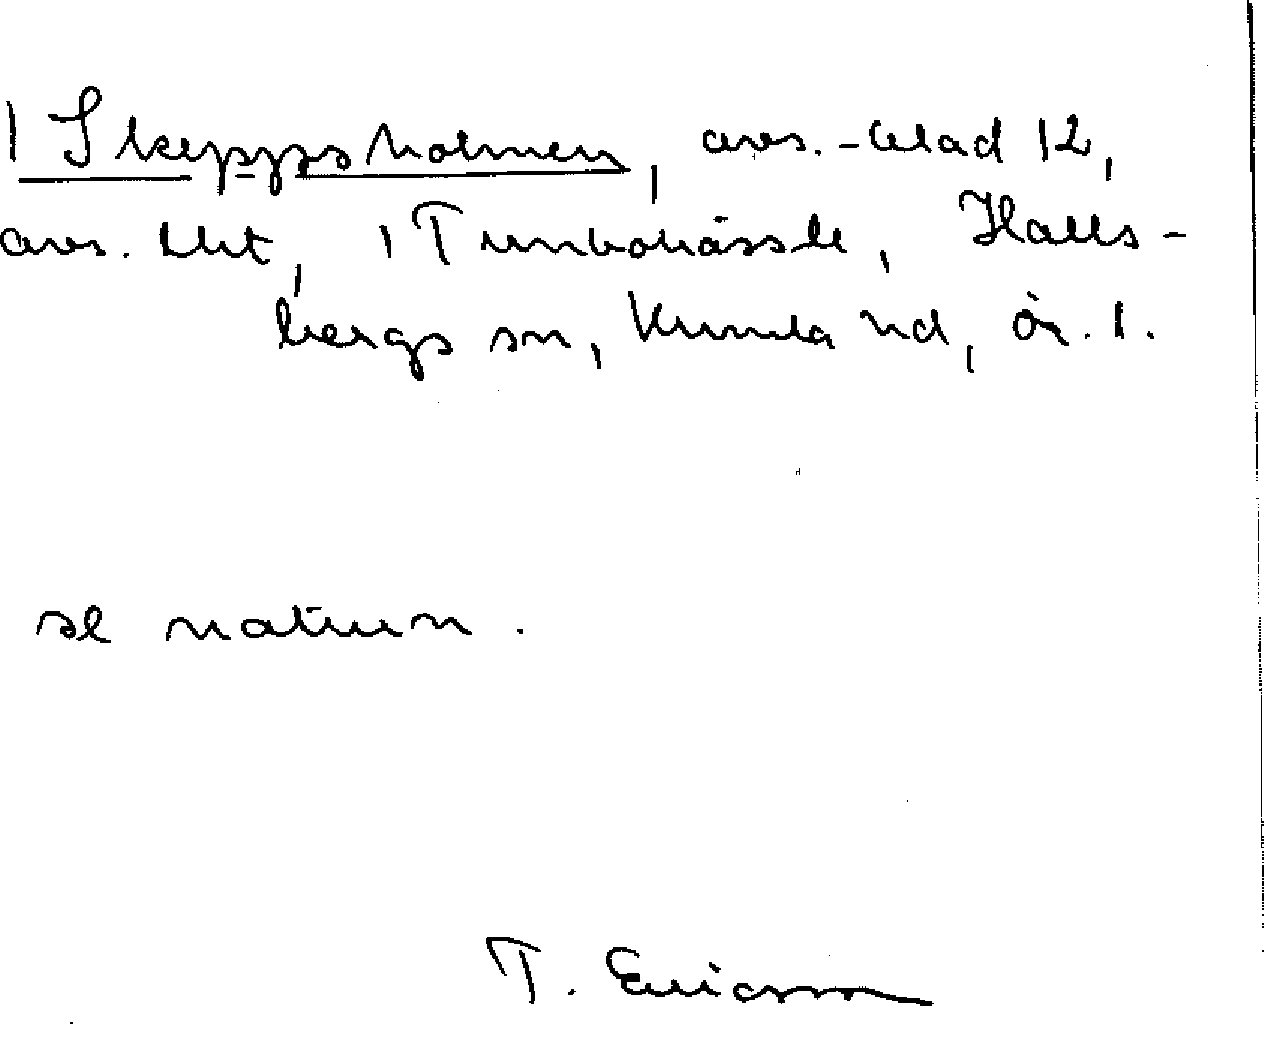 1 Skeppsholmen, avs. -blad 12,
avs. Utt, 1 Tunbohässle, Halls-
bergs sn, Kumla hd, ör. l.
se naturn.
T. Ericsson